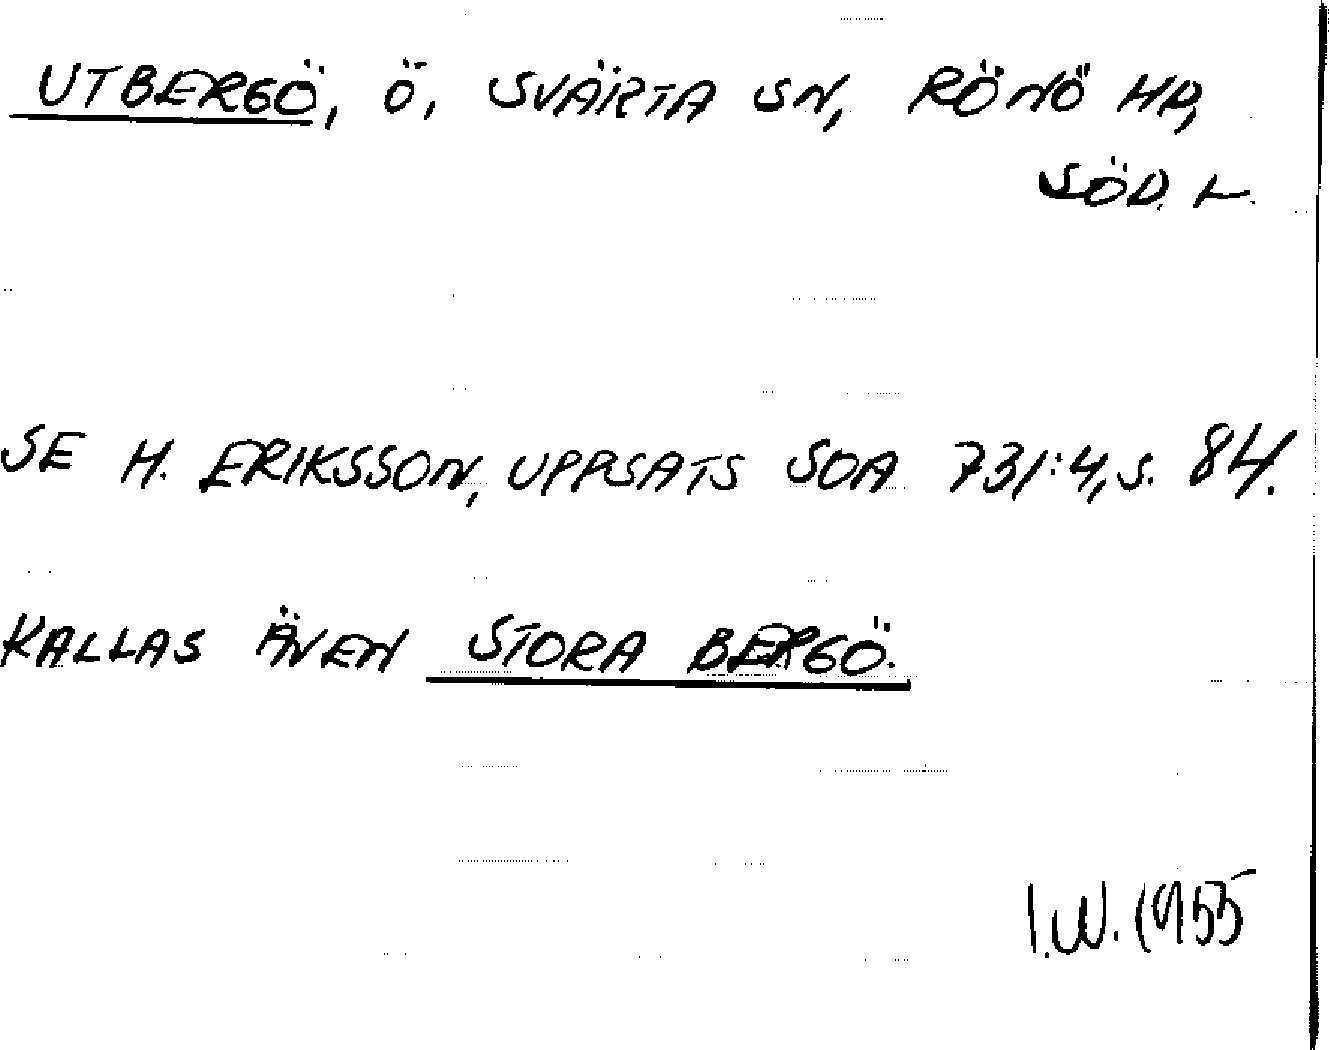 UTBERGÖ, Ö, SVÄRTA SN, RÖNÖ HD,
SÖD. L.
SE H. ERIKSSON, UPPSATS SOA 731:4, S. 84.
KALLAS ÄVEN STORA BERGÖ.
I.W. 1955